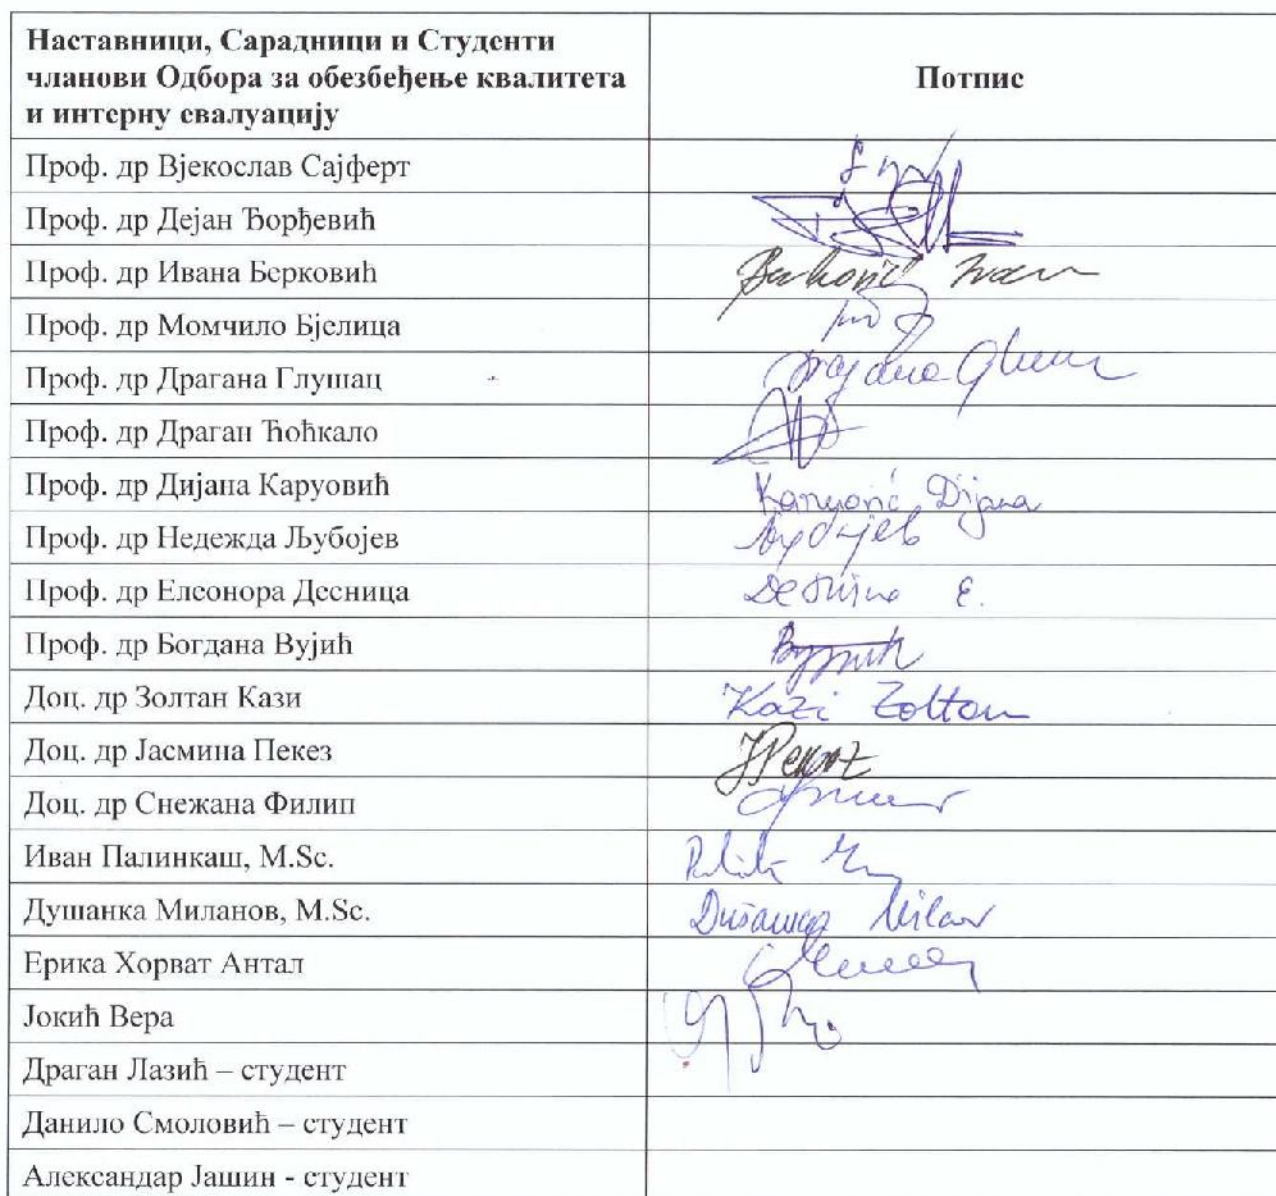 Наставници, Сарадници и Студенти
чланови Одбора за обезбеђење квалитета
и интерну евалуацију
Потпис
Проф. др Вјекослав Сајферт
Проф. др Дејан Ђорђевић
Проф. др Ивана Берковић
Berković Ivana
Проф. др Момчило Бјелица
Проф. др Драгана Глушац
Проф. др Драган Ћоћкало
Проф. др Дијана Каруовић
Karuović Dijana
Проф. др Недежда Љубојев
Проф. др Елеонора Десница
Desnica E.
Проф. др Богдана Вујић
Доц. др Золтан Кази
Kazi Zoltan
Доц. др Јасмина Пекез
Доц. др Снежана Филип
Иван Палинкаш, M.Sc.
Душанка Миланов, M.Sc.
Dušanka Milanov
Ерика Хорват Антал
Јокић Вера
Драган Лазић – студент
Данило Смоловић – студент
Александар Јашин - студент